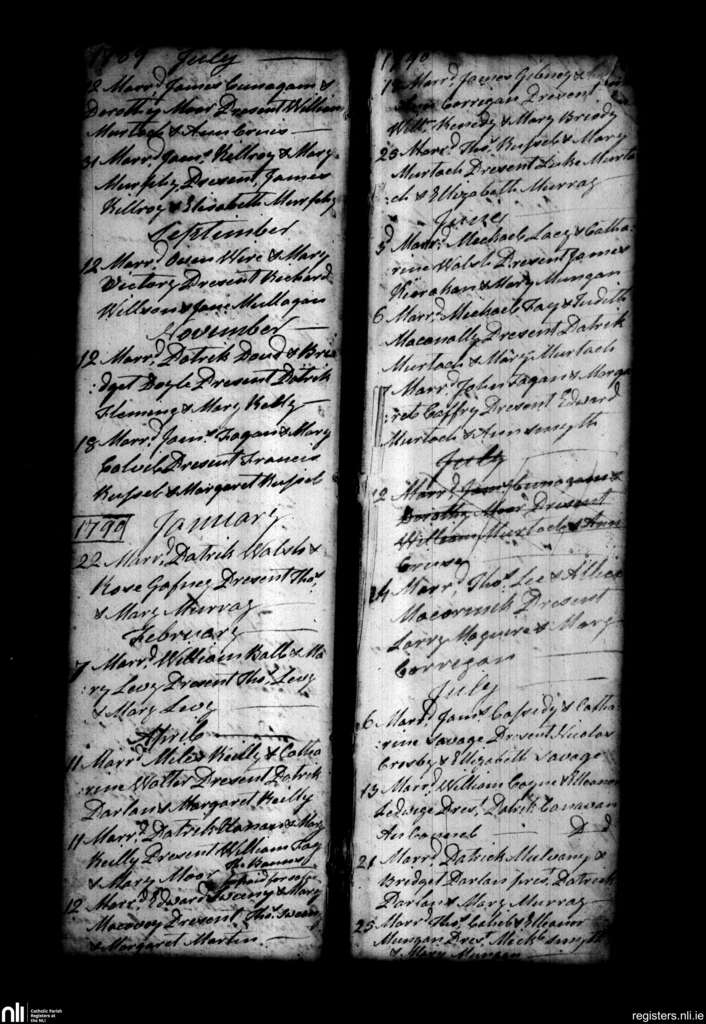 1789 July
12 Marrd. James Cunagam &
Dorothy Moor Present William
Murtach & Ann Cruis
31 Marrd. Jams. Kellroy & Mary
Murphy Present James
Killroy & Elisabeth Murphy
September
12 Marrd. Owen Wire & Mary
Victory Present Richard
Willson & Jane Mullagan
November
12 Marrd. Patrik Doud & Bri
:dget Doyle Present Patrik
Fleming & Mary Kelly
18 Marrd. Jams. Fagan & Mary
Colvil Present Francis
Russel & Margaret Russel
1790 January
22 Marrd. Patrik Walsh &
Rose Gafney Present Thos.
& Mary Murray
February
7 Marrd. William Ball & Ma
:ry Levy Present Thos. Levy
& Mary Levy
April
11 Marrd. Miles Reilly & Catha
:rine Walter Present Patrik
Darlan & Margaret Reilly
11 Marrd. Patrik & Mary
Reilly Present William Fay
& Mary Moor The Banns
12 Marrd. Edward Sweeny & Mary
Present Thos. Sweeny
& Margaret Martin
1790
Marrd. James Gibney &
Corrigan Present
Willm. Kenedy & Mary Briody
23 Marrd. Thos. Russel & Mary
Murtach Present Luke Murta
:ch & Elizabeth Murray
June
5 Marrd. Michael Lacy & Catha:
rine Walsh Present James
Kierahan & Mary Mungan
6 Marrd. Michael Fay & Judith
Maconally Present Patrik
Murtach & Mary Murtach
Marrd. John Fagan & Marga
:ret Caffry Present Edward
Murtach & Ann Smyth
July
12 Marrd. Jams. Cunagam &
Dorothy Moor Present
William Murtach & Ann
Cruse
24 Marrd. Thos. Lee & Allice
Macormick Present
Larry Maguire & Mary
Corrigan
July
6 Marrd. Jams. Cassidy & Catha
:rine Savage Present Nicolas
Crosby & Elizabeth Savage
13 Marrd. William Coyne & Elleanor
Ledwige Prest. Patrik Canavan
21 Marrd. Patrick Mulvany &
Bridget Darlan prest. Patrick
Darlan & Mary Murray
25 Marrd. Thos. & Elleanr
Mungan Prest. Michl. Smyth
& Mary Mungan
nli Catholic Parish
Registers at
the NLI
registers.nli.ie